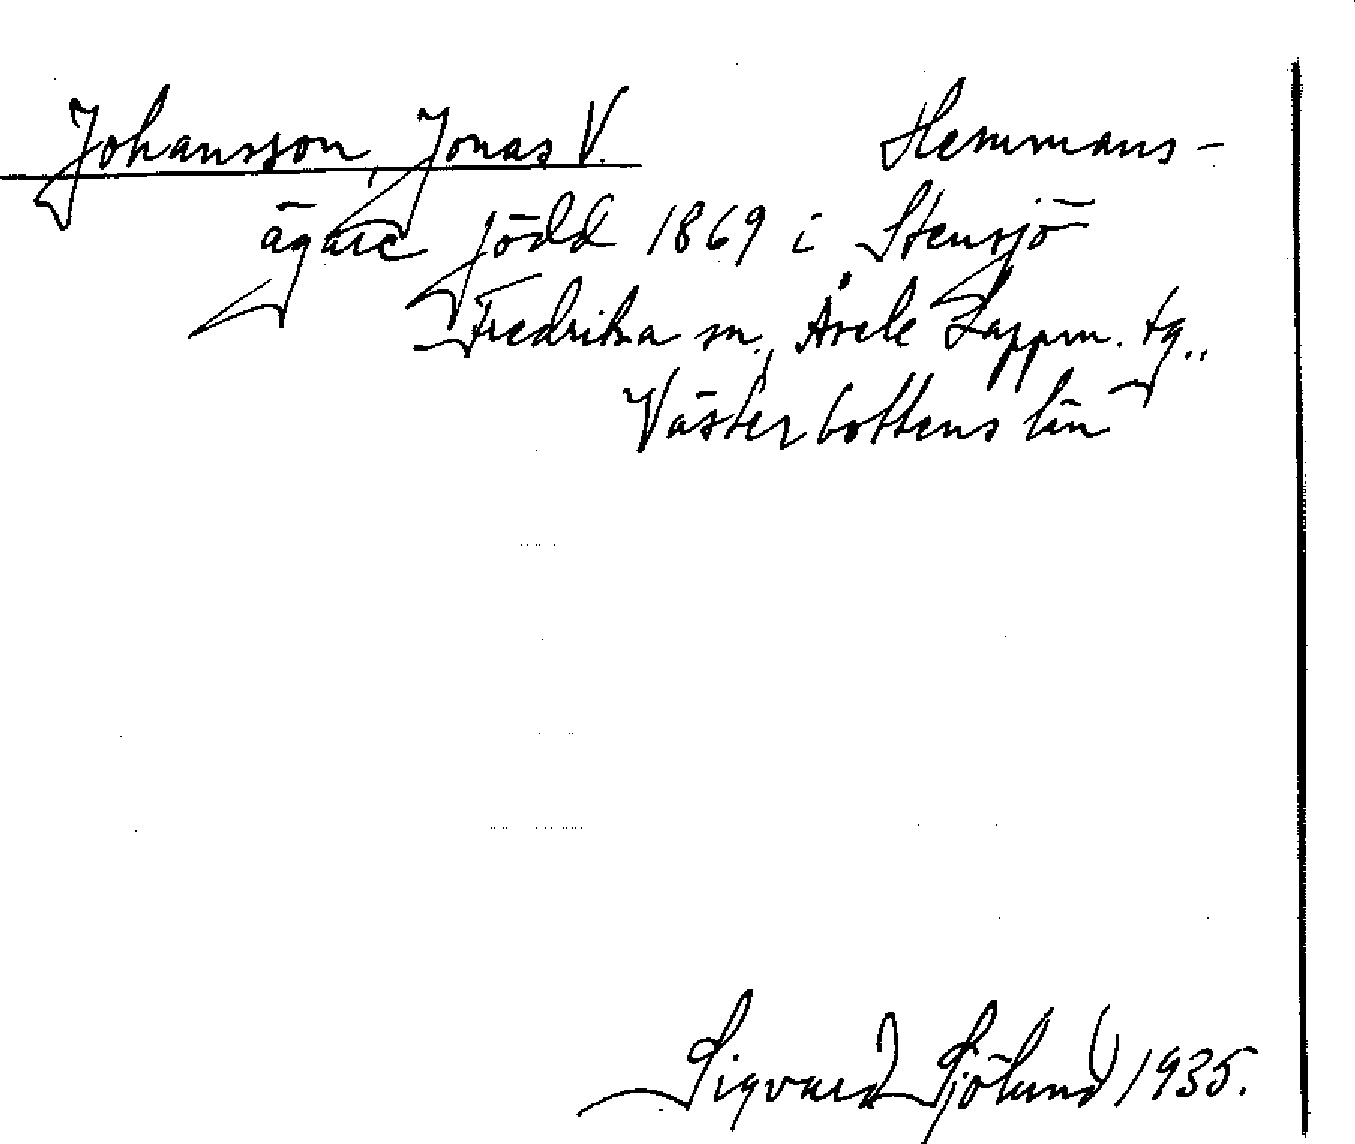 Johansson, Jonas V. Hemmans-
ägare född 1869 i Stensjö
Fredrika sn, Åsele Lappm. tg.,
Västerbottens län
Sigvard Sjölund 1935.